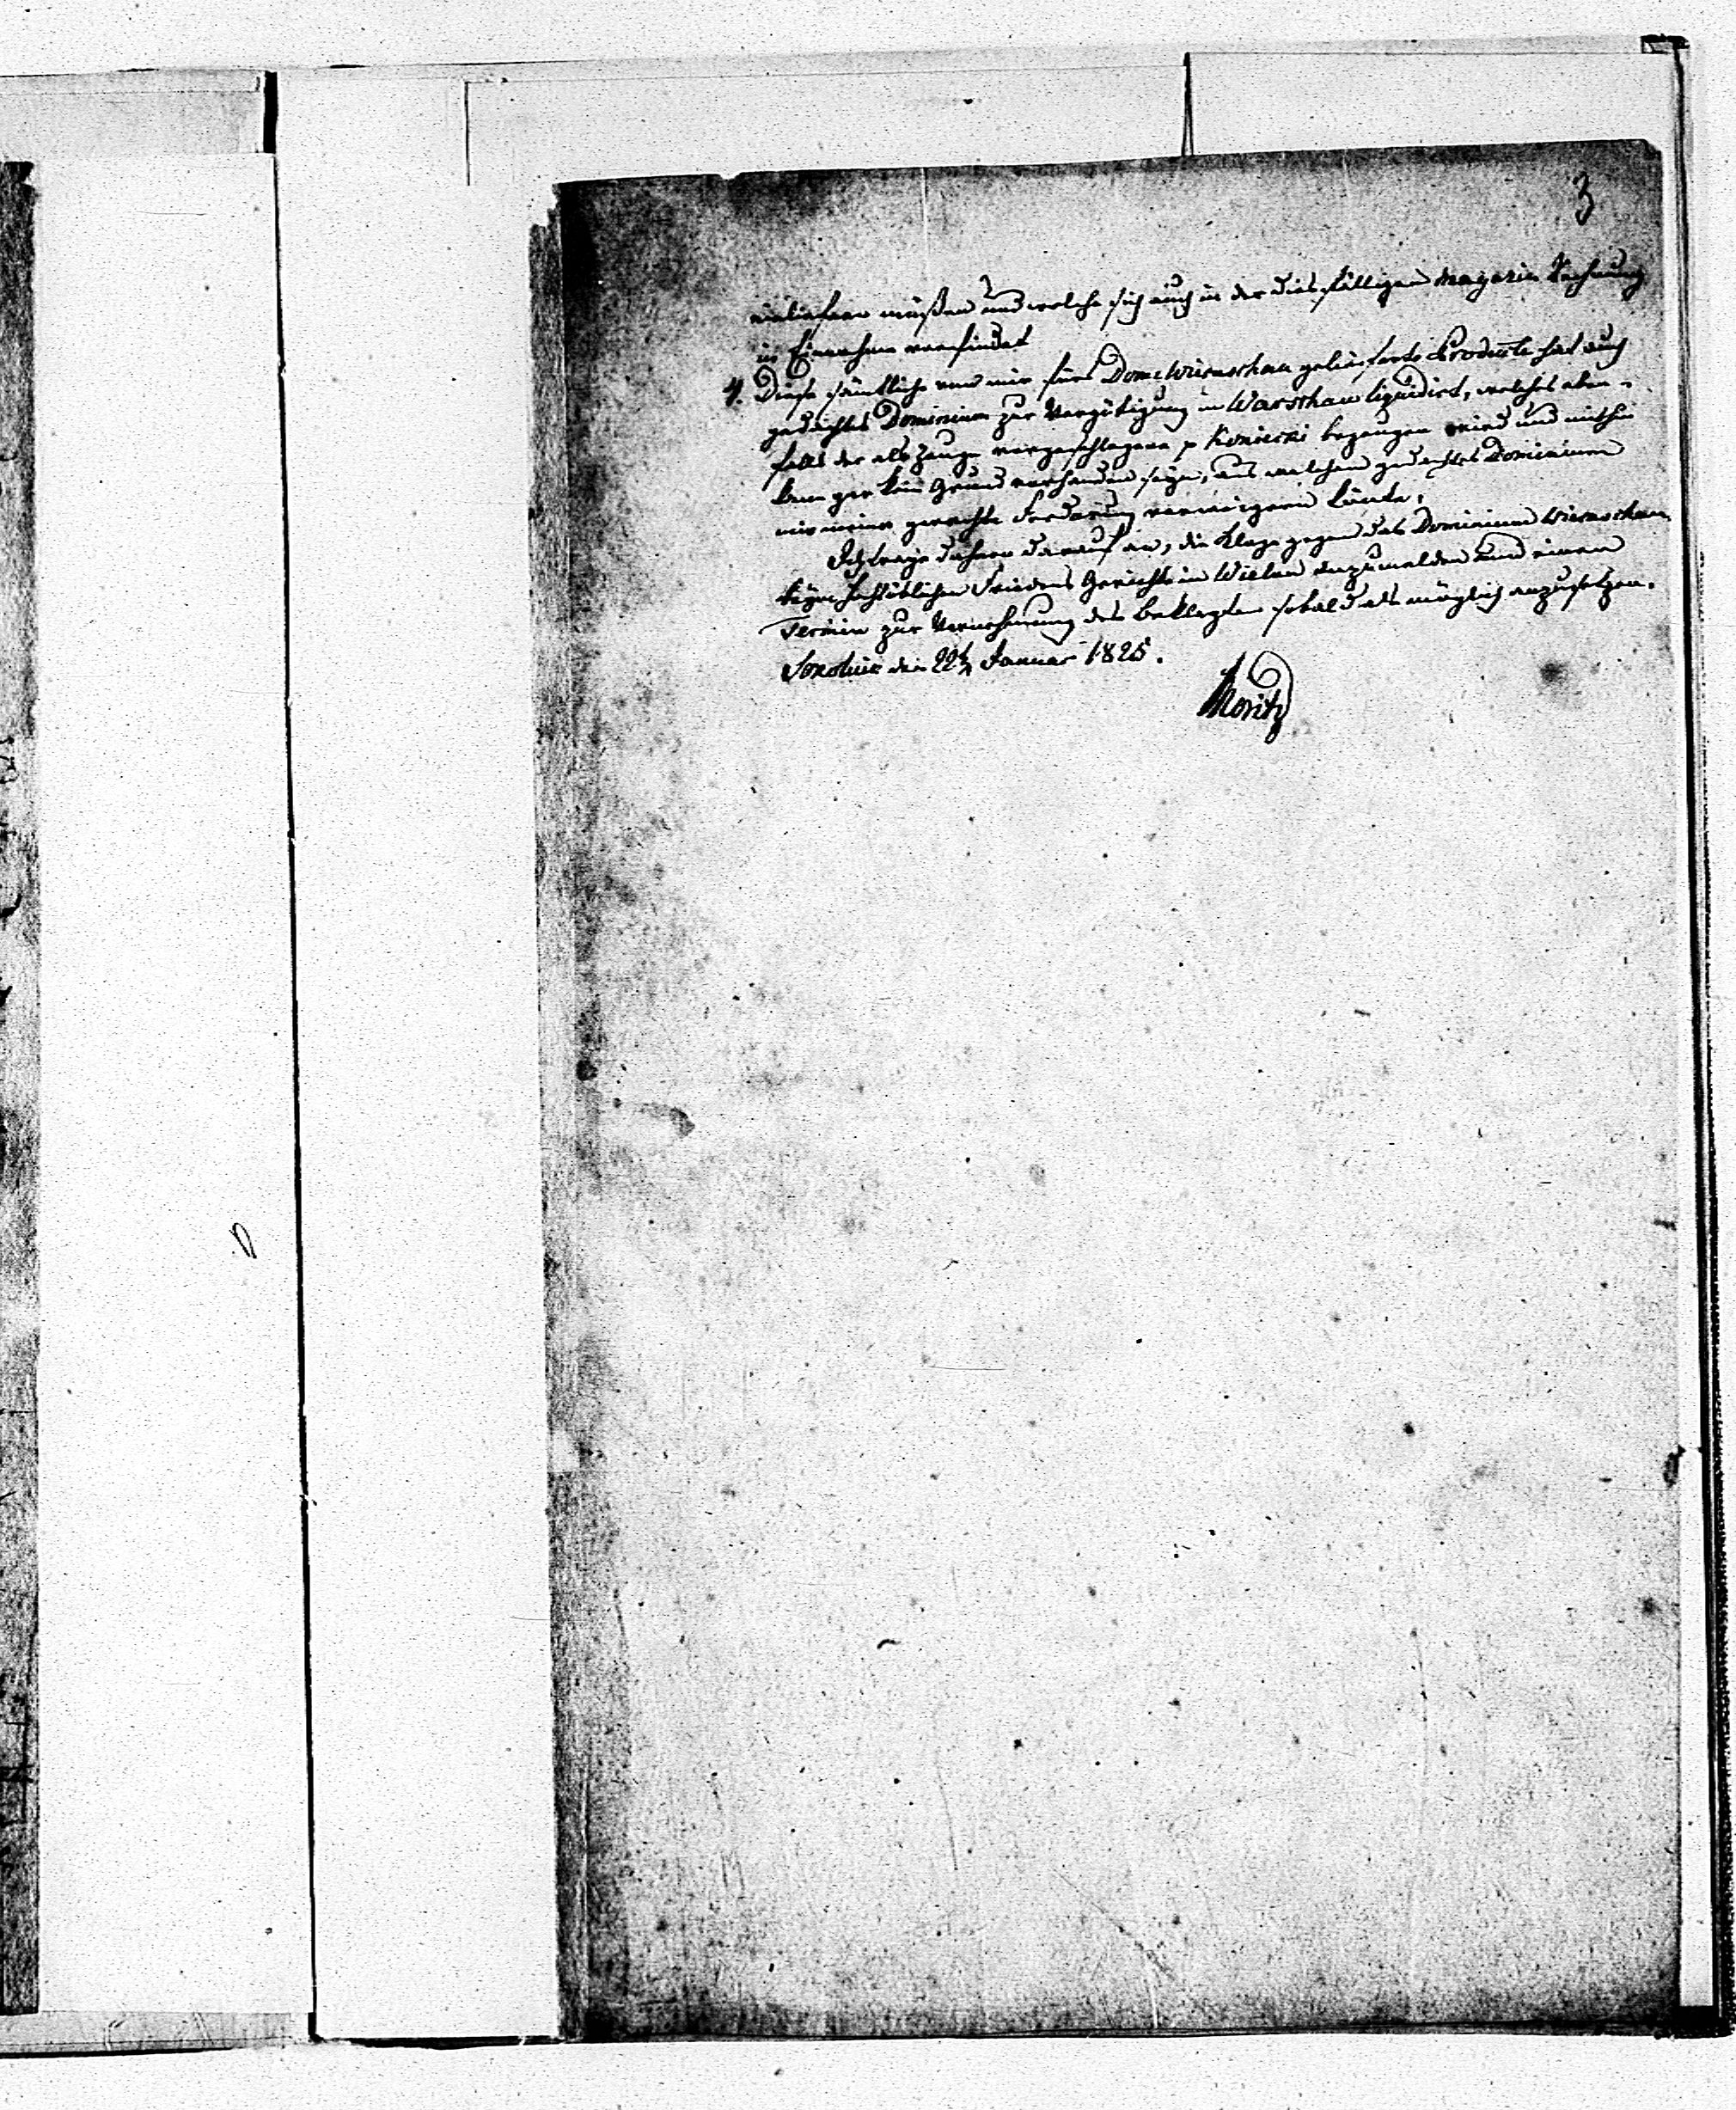 3
einliefern müßen und welche sich auch in der diesfälligen Magazin Rechnung
in Einnahme vorfindet
4. Diese sämtliche von mir fürs Dom: Wieruschau gelieferte Produkte hat auch
gedachtes Dominium zur Vergütigung in Warschau liquidirt, welches eben-
falls der als Zeuge vorgeschlagene p Konierzki bezeugen wird und mithin
kann gar kein Grund vorhanden seyn, aus welchem gedachtes Dominium
mir meine gerechte Forderung verweigern könte.
Ich trage dahero darauf an, die Klage gegen das Dominium Wieruschau
beym Hochlöblichen Friedens Gericht in Wielun anzumelden und einen
Termin zur Vernehmung des Beklagten sobald als möglich anzusetzen.
Sokolnik den 22t Januar 1825.
Moritz